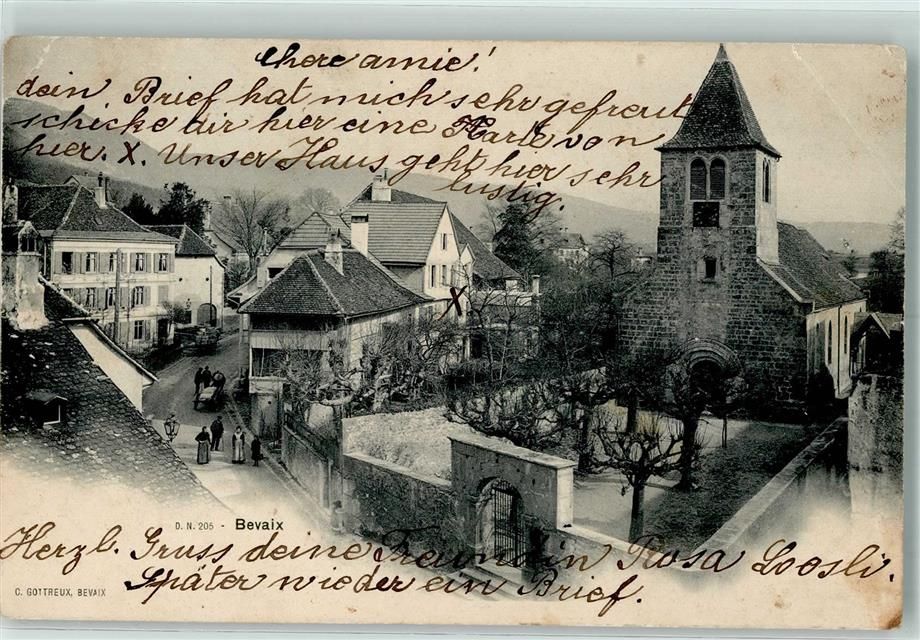 chere amie!
dein Brief hat mich sehr gefreut
schicke dir hier eine Karte von
hier. X. Unser Haus geht hier sehr
lustig.
X
D. N. 205 - Bevaix
Herzl. Gruss deine Freundin Rosa Loosli.
Später wieder ein Brief.
C. GOTTREUX, BEVAIX